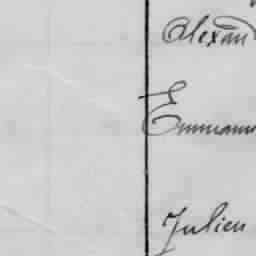 Alexan
Emmanu
Julien